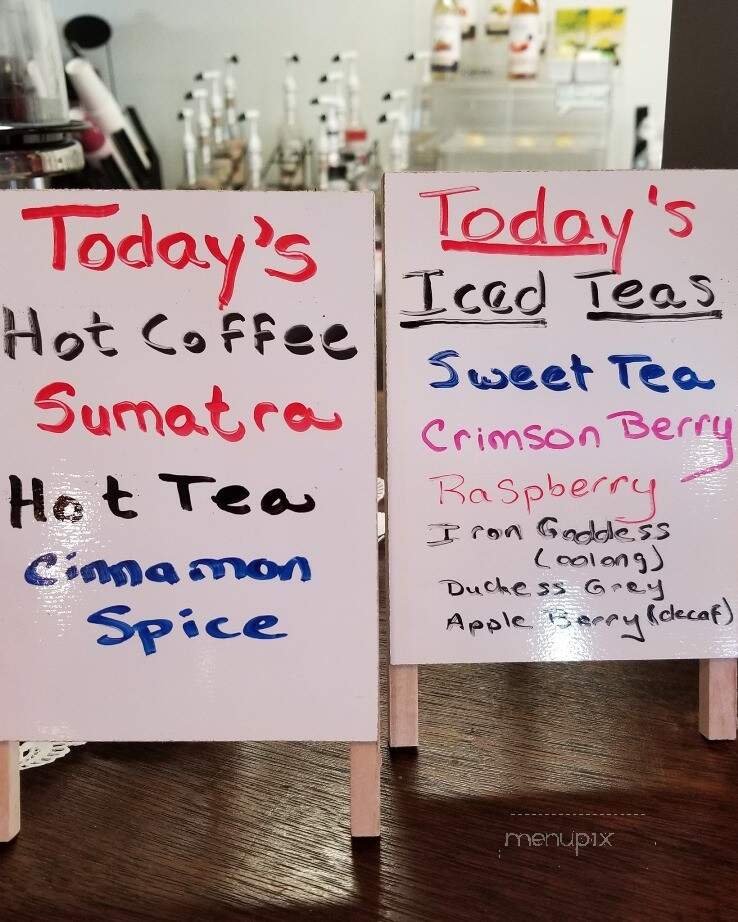 Today's
Hot Coffee
Sumatra
Hot Tea
Cinnamon
Spice
Today's
Iced Teas
Sweet Tea
Crimson Berry
Raspberry
Iron Goddess
(oolong)
Duchess Grey
Apple Berry (decaf)
menupix